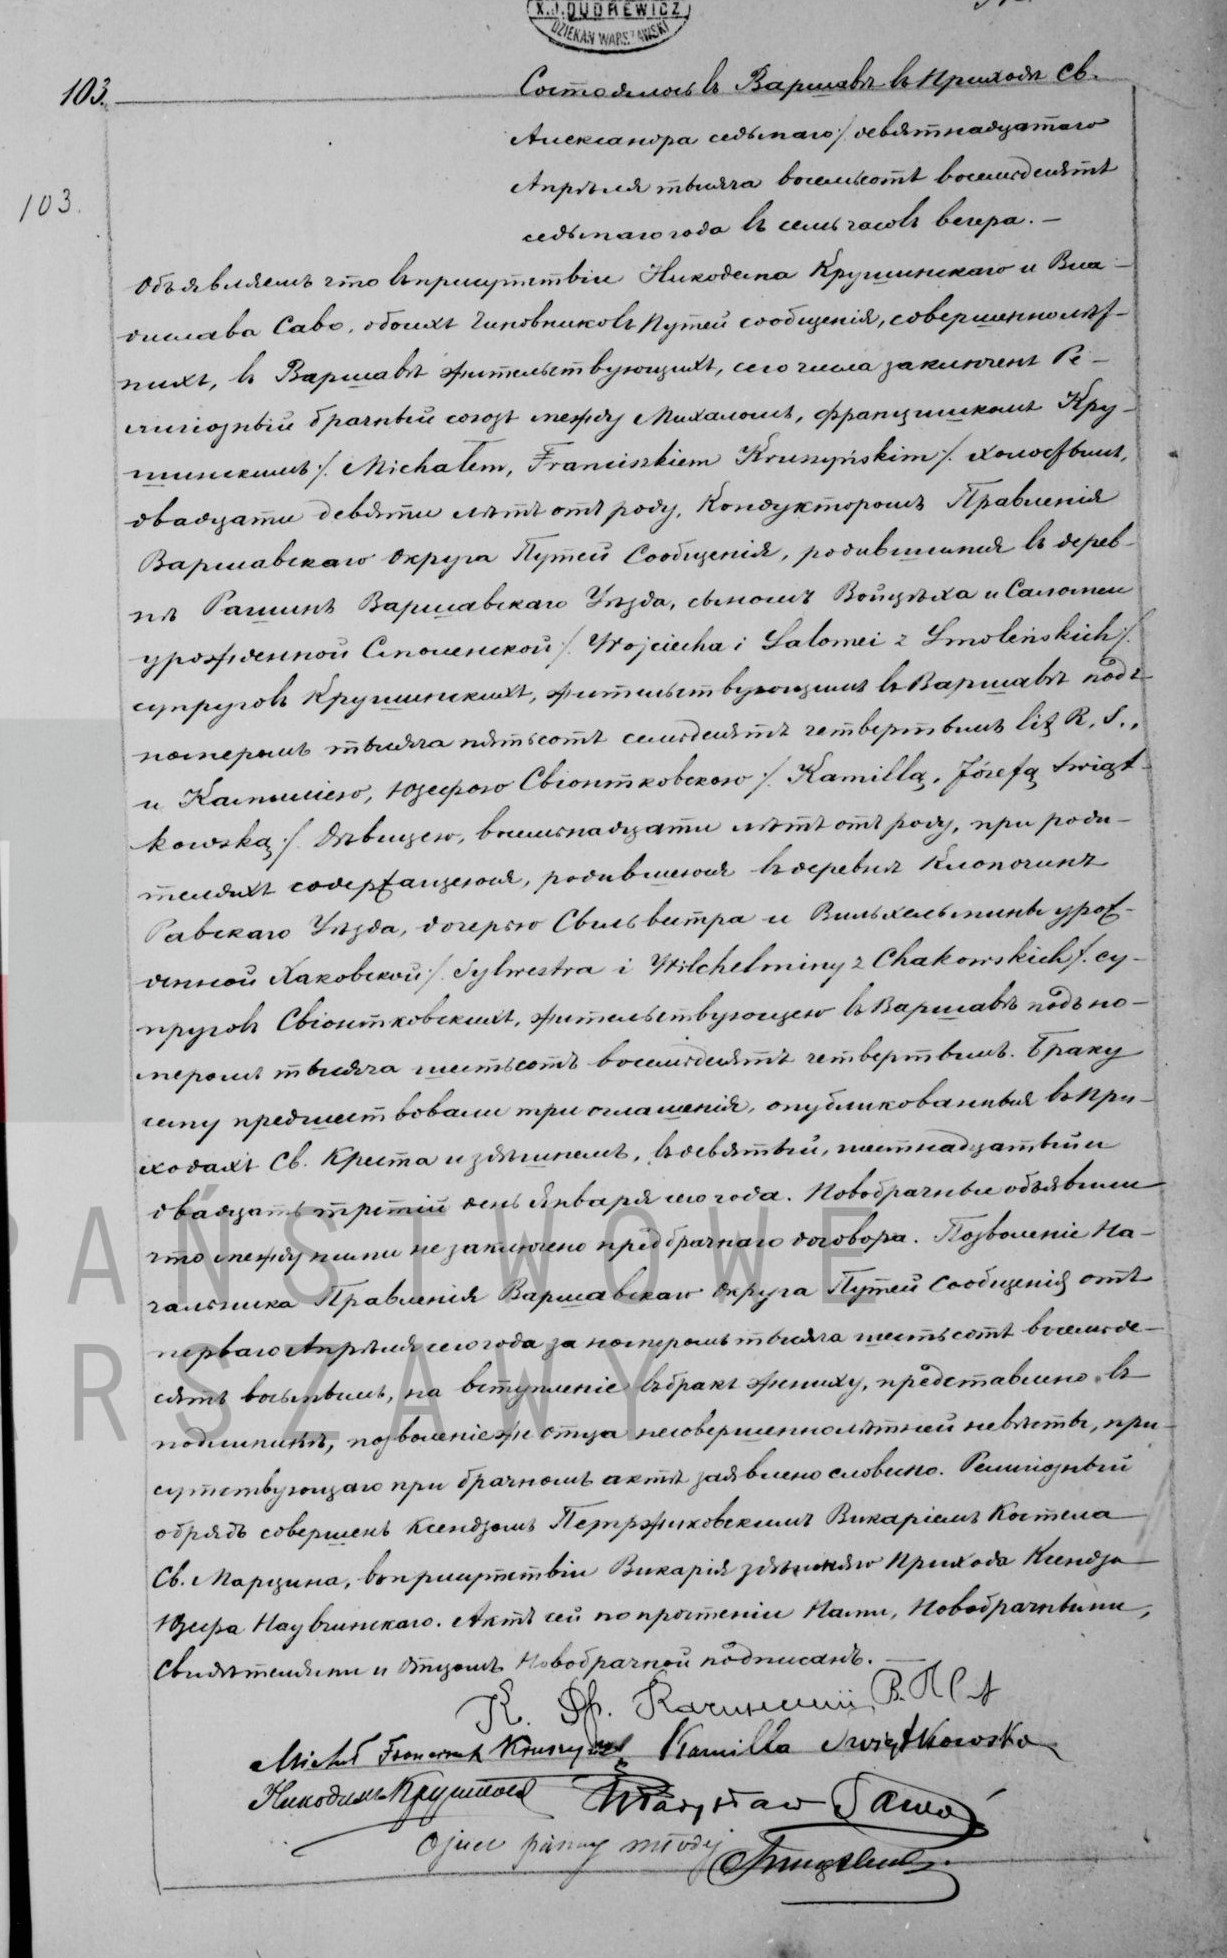 X.J.DUDREWICZ
DZIEKAN WARSZAWSKI
103.
Состоялось въ Варшавѣ въ Приходѣ Св.
Александра седьмаго /. девятнадцатаго
103.
Апрѣля тысяча восемьсотъ восемьдесятъ
седьмаго года въ семь часовъ вечера. —
Объявляемъ что въ присутствіи Никодема Крушинскаго и Вла-
дислава Саво, обоихъ Чиновниковъ Путей сообщенія, совершеннолѣт-
нихъ, въ Варшавѣ жительствующихъ, сего числа заключенъ Ре-
лигіозный брачный союзъ между Михаломъ, Францишкомъ Кру-
шинскимъ /. Michałem, Franciszkiem Kruszyńskim /. холостымъ,
двадцати девяти лѣтъ отъ роду, Кондукторомъ Правленія
Варшавскаго Округа Путей Сообщенія, родившимся въ дерев-
нѣ Рашинѣ Варшавскаго Уѣзда, сыномъ Войцѣха и Саломеи
урожденной Смоленской /. Wojciecha i Salomei z Smoleńskich /.
супруговъ Крушинскихъ, жительствующимъ въ Варшавѣ подъ
номеромъ тысяча пятьсотъ семьдесятъ четвертымъ lit R. S.,
и Камиллею, Юзефою Свіонтковскою /. Kamillą, Józefą Świąt-
kowską /. Дѣвицею, восемнадцати лѣтъ отъ роду, при роди-
теляхъ содержащеюся, родившеюся въ деревнѣ Клопочинѣ
Равскаго Уѣзда, дочерью Сильвестра и Вильхельмины урож-
денной Хаковской /. Sylwestra i Wilchelminy z Chakowskich /. су-
пруговъ Свіонтковскихъ, жительствующею въ Варшавѣ подъ но-
меромъ тысяча шестьсотъ восемьдесятъ четвертымъ. Браку
сему предшествовали три оглашенія, опубликованныя въ При-
ходахъ Св. Креста и здѣшнемъ, въ девятый, шестнадцатый и
двадцать третій день Января сего года. Новобрачные объявили
что между ними не заключено предбрачнаго договора. Позволеніе На-
чальника Правленія Варшавскаго Округа Путей Сообщенія отъ
перваго Апрѣля сего года за номеромъ тысяча шестьсотъ восемьде-
сятъ восьмымъ, на вступленіе въ бракъ жениху, представлено въ
подлинникѣ, позволеніе же отца несовершеннолѣтней невѣсты, при-
сутствующаго при брачномъ актѣ заявлено словесно. Религіозный
обрядъ совершенъ Ксендзомъ Петржиковскимъ Викаріемъ Костела
Св. Марцина, въ присутствіи Викарія здѣшняго Прихода Ксендза
Юзефа Наувчинскаго. Актъ сей по прочтеніи Нами, Новобрачными,
Свидѣтелями и Отцомъ Новобрачной подписанъ. —
Michał Franciszek Kruszyński Kamilla Swiątkowska
Никодимъ Крушинскій Władysław Sawo
Ojciec panny młodej
PAŃSTWOWE
RSZAWY